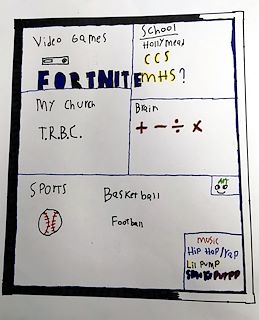 Video Games
FORTNITE
School
Hollymead
CCS
MHS?
My Church
T.R.B.C.
Brain
+ - ÷ x
SPORTS
Basketball
Football
Art
music
Hip Hop/rap
Lil Pump